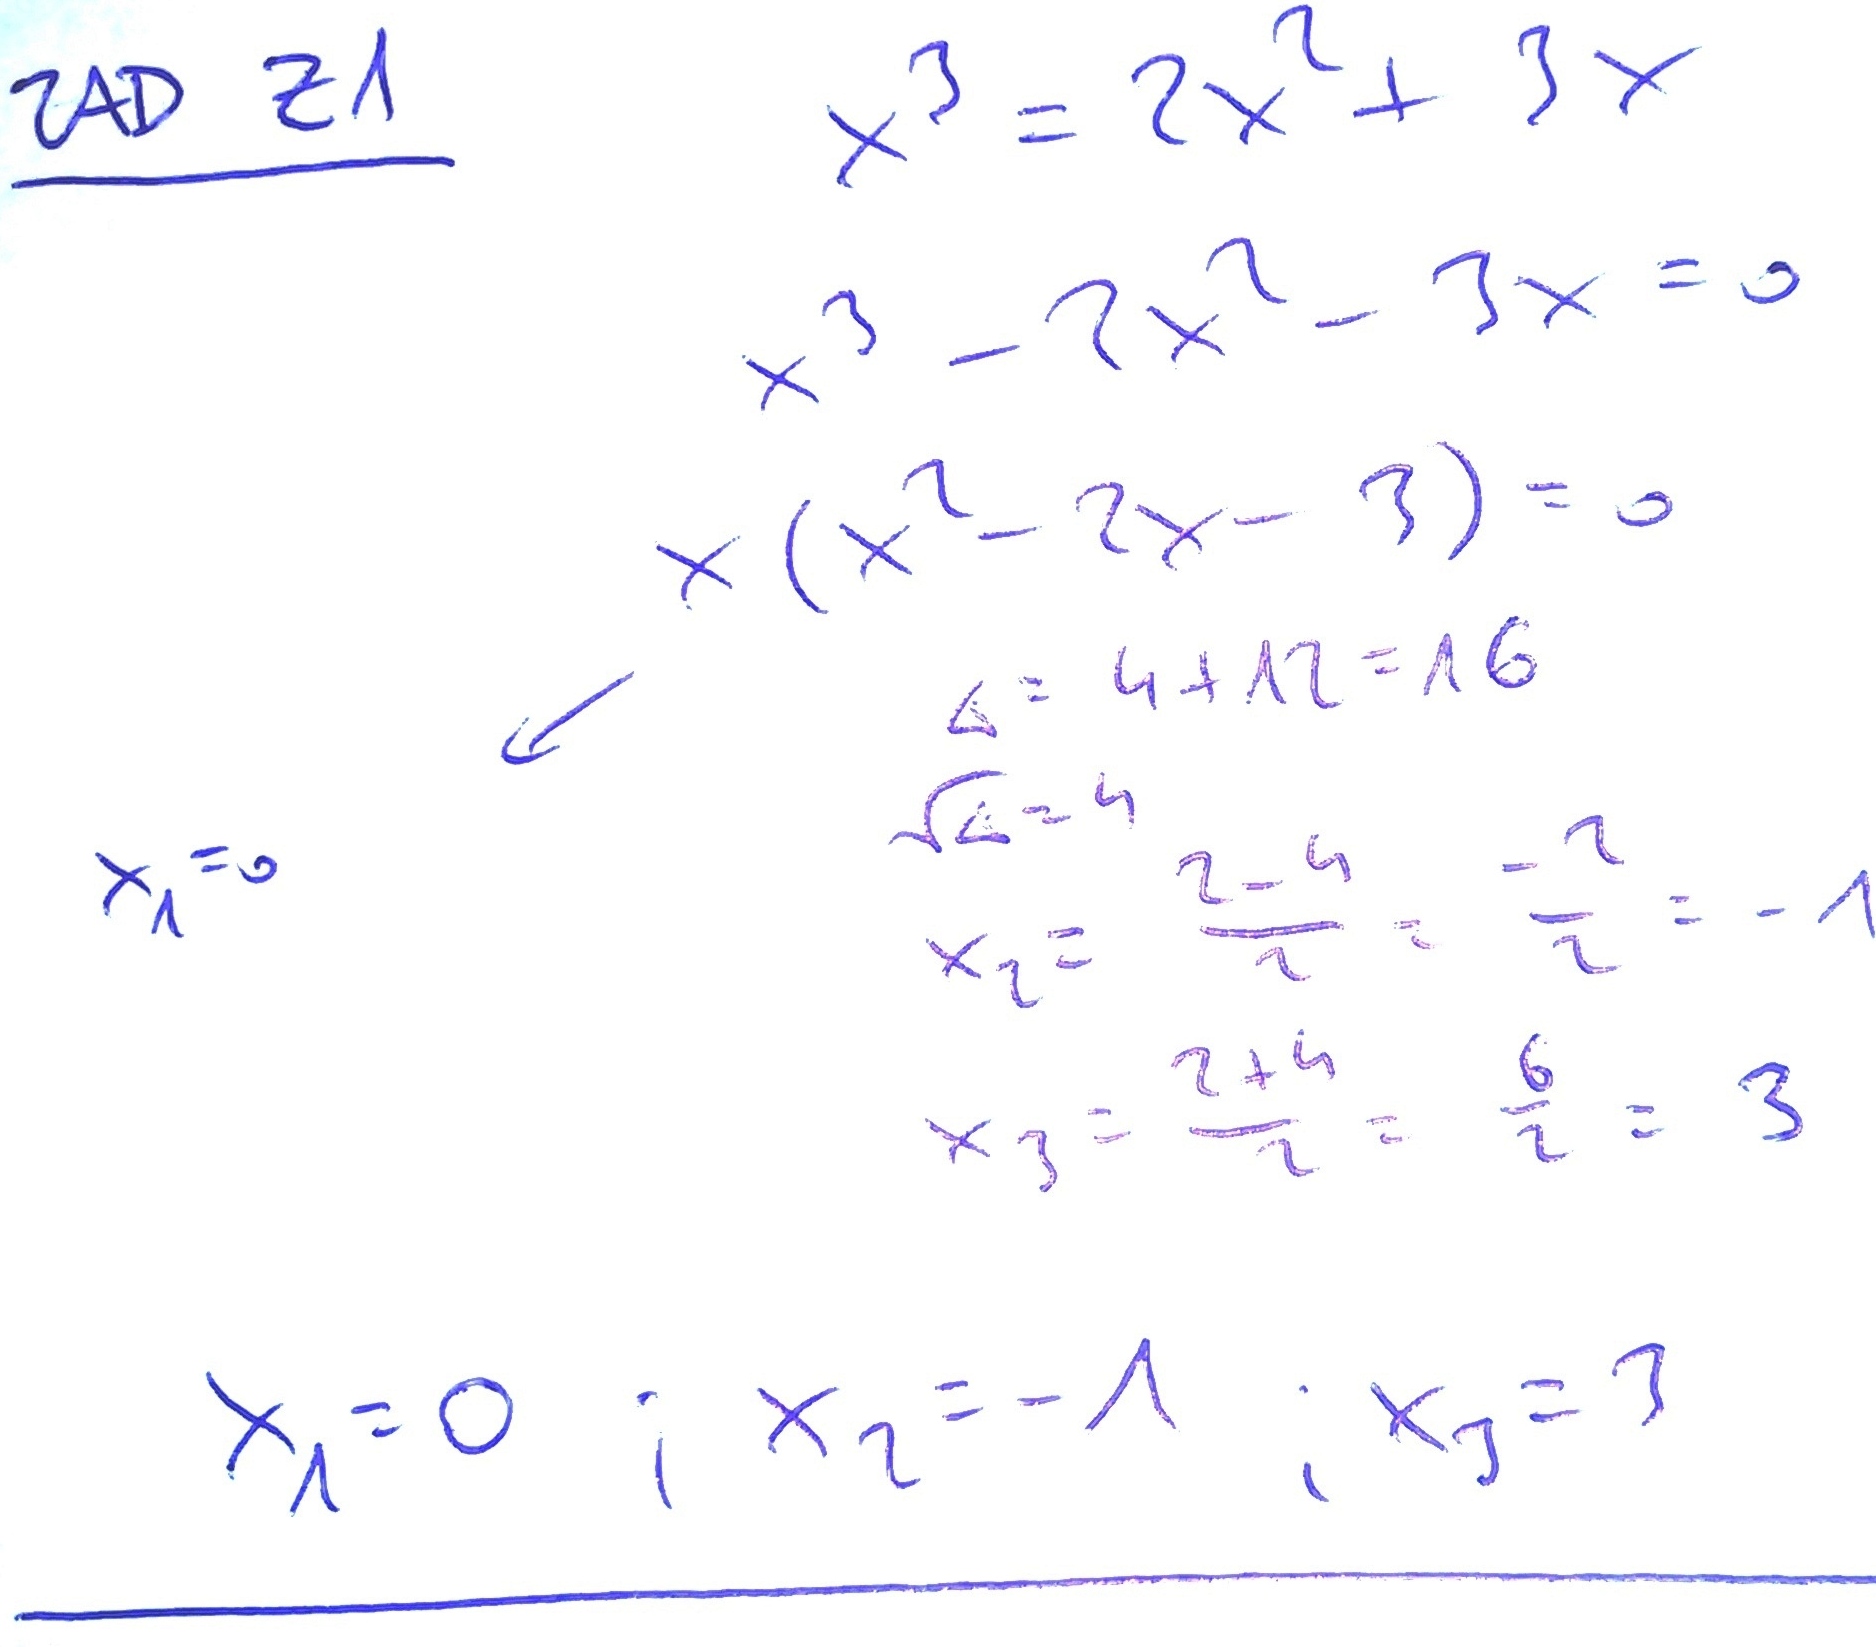 ZAD Z1
x³ = 2x² + 3x
x³ - 2x² - 3x = 0
x(x² - 2x - 3) = 0
Δ = 4 + 12 = 16
√Δ = 4
x₁ = 0
x₂ = (2-4)/2 = -2/2 = -1
x₃ = (2+4)/2 = 6/2 = 3
x₁ = 0 ; x₂ = -1 ; x₃ = 3